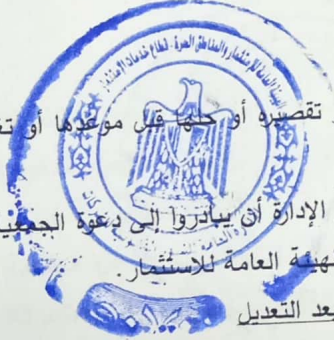 الهيئة العامة للاستثمار والمناطق الحرة - قطاع خدمات الاستثمار
تقصيره أو حلها قبل موعدها أو
الإدارة أن يبادروا إلى دعوة
الهيئة العامة للاستثمار.
بعد التعديل